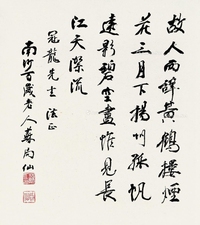 故人西辭黃鶴樓煙
花三月下揚州孤帆
遠影碧空盡惟見長
江天際流
冠龍先生法正
南沙百歲老人蘇局仙